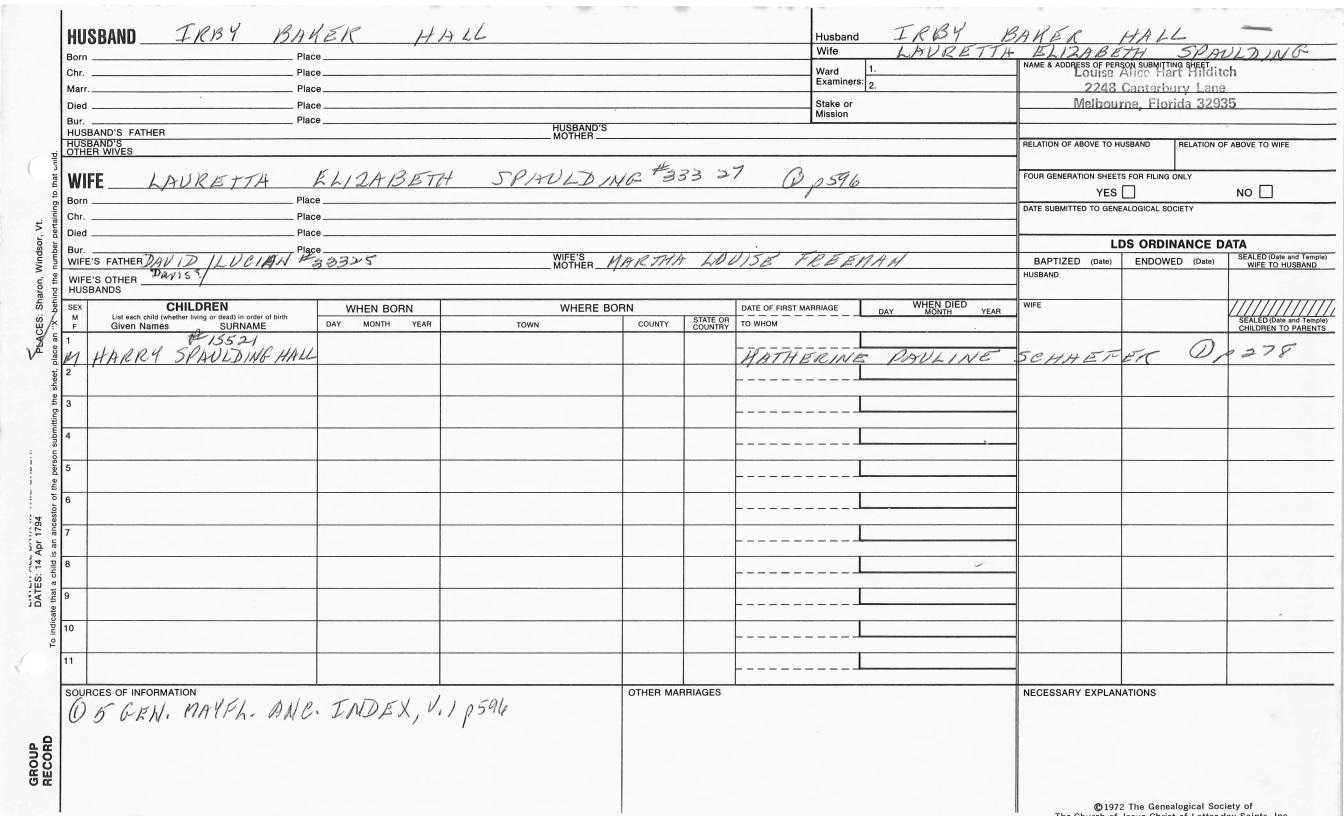 HUSBAND IRBY BAKER HALL
Born Place
Chr. Place
Marr. Place
Died Place
Bur. Place
HUSBAND'S FATHER HUSBAND'S MOTHER
HUSBAND'S OTHER WIVES
Husband IRBY BAKER HALL
Wife LAURETTA ELIZABETH SPAULDING
Ward Examiners: 1.
2.
Stake or Mission
NAME & ADDRESS OF PERSON SUBMITTING SHEET
Louise Alice Hart Hilditch
2248 Canterbury Lane
Melbourne, Florida 32935
RELATION OF ABOVE TO HUSBAND RELATION OF ABOVE TO WIFE
FOUR GENERATION SHEETS FOR FILING ONLY
YES NO
DATE SUBMITTED TO GENEALOGICAL SOCIETY
WIFE LAURETTA ELIZABETH SPAULDING #333 27 ① p596
Born Place
Chr. Place
Died Place
Bur. Place
WIFE'S FATHER DAVID/LUCIAN #33325 WIFE'S MOTHER MARTHA LOUISE FREEMAN
Davis?/
WIFE'S OTHER HUSBANDS
LDS ORDINANCE DATA
BAPTIZED (Date) ENDOWED (Date) SEALED (Date and Temple) WIFE TO HUSBAND
HUSBAND
WIFE
SEALED (Date and Temple) CHILDREN TO PARENTS
SEX M F
CHILDREN
List each child (whether living or dead) in order of birth
Given Names SURNAME
WHEN BORN
DAY MONTH YEAR
WHERE BORN
TOWN COUNTY STATE OR COUNTRY
DATE OF FIRST MARRIAGE
TO WHOM
WHEN DIED
DAY MONTH YEAR
1 #15521
M HARRY SPAULDING HALL KATHERINE PAULINE SCHAEFER ① p278
2
3
4
5
6
7
8
9
10
11
SOURCES OF INFORMATION
① 5 GEN. MAYFL. ANC. INDEX, V.1 p596
OTHER MARRIAGES
NECESSARY EXPLANATIONS
©1972 The Genealogical Society of
The Church of Jesus Christ of Latter-day Saints, Inc.
GROUP RECORD
DATES: 14 Apr 1794
PLACES: Sharon, Windsor, Vt.
To indicate that a child is an ancestor of the person submitting the sheet, place an "X" behind the number pertaining to that child.